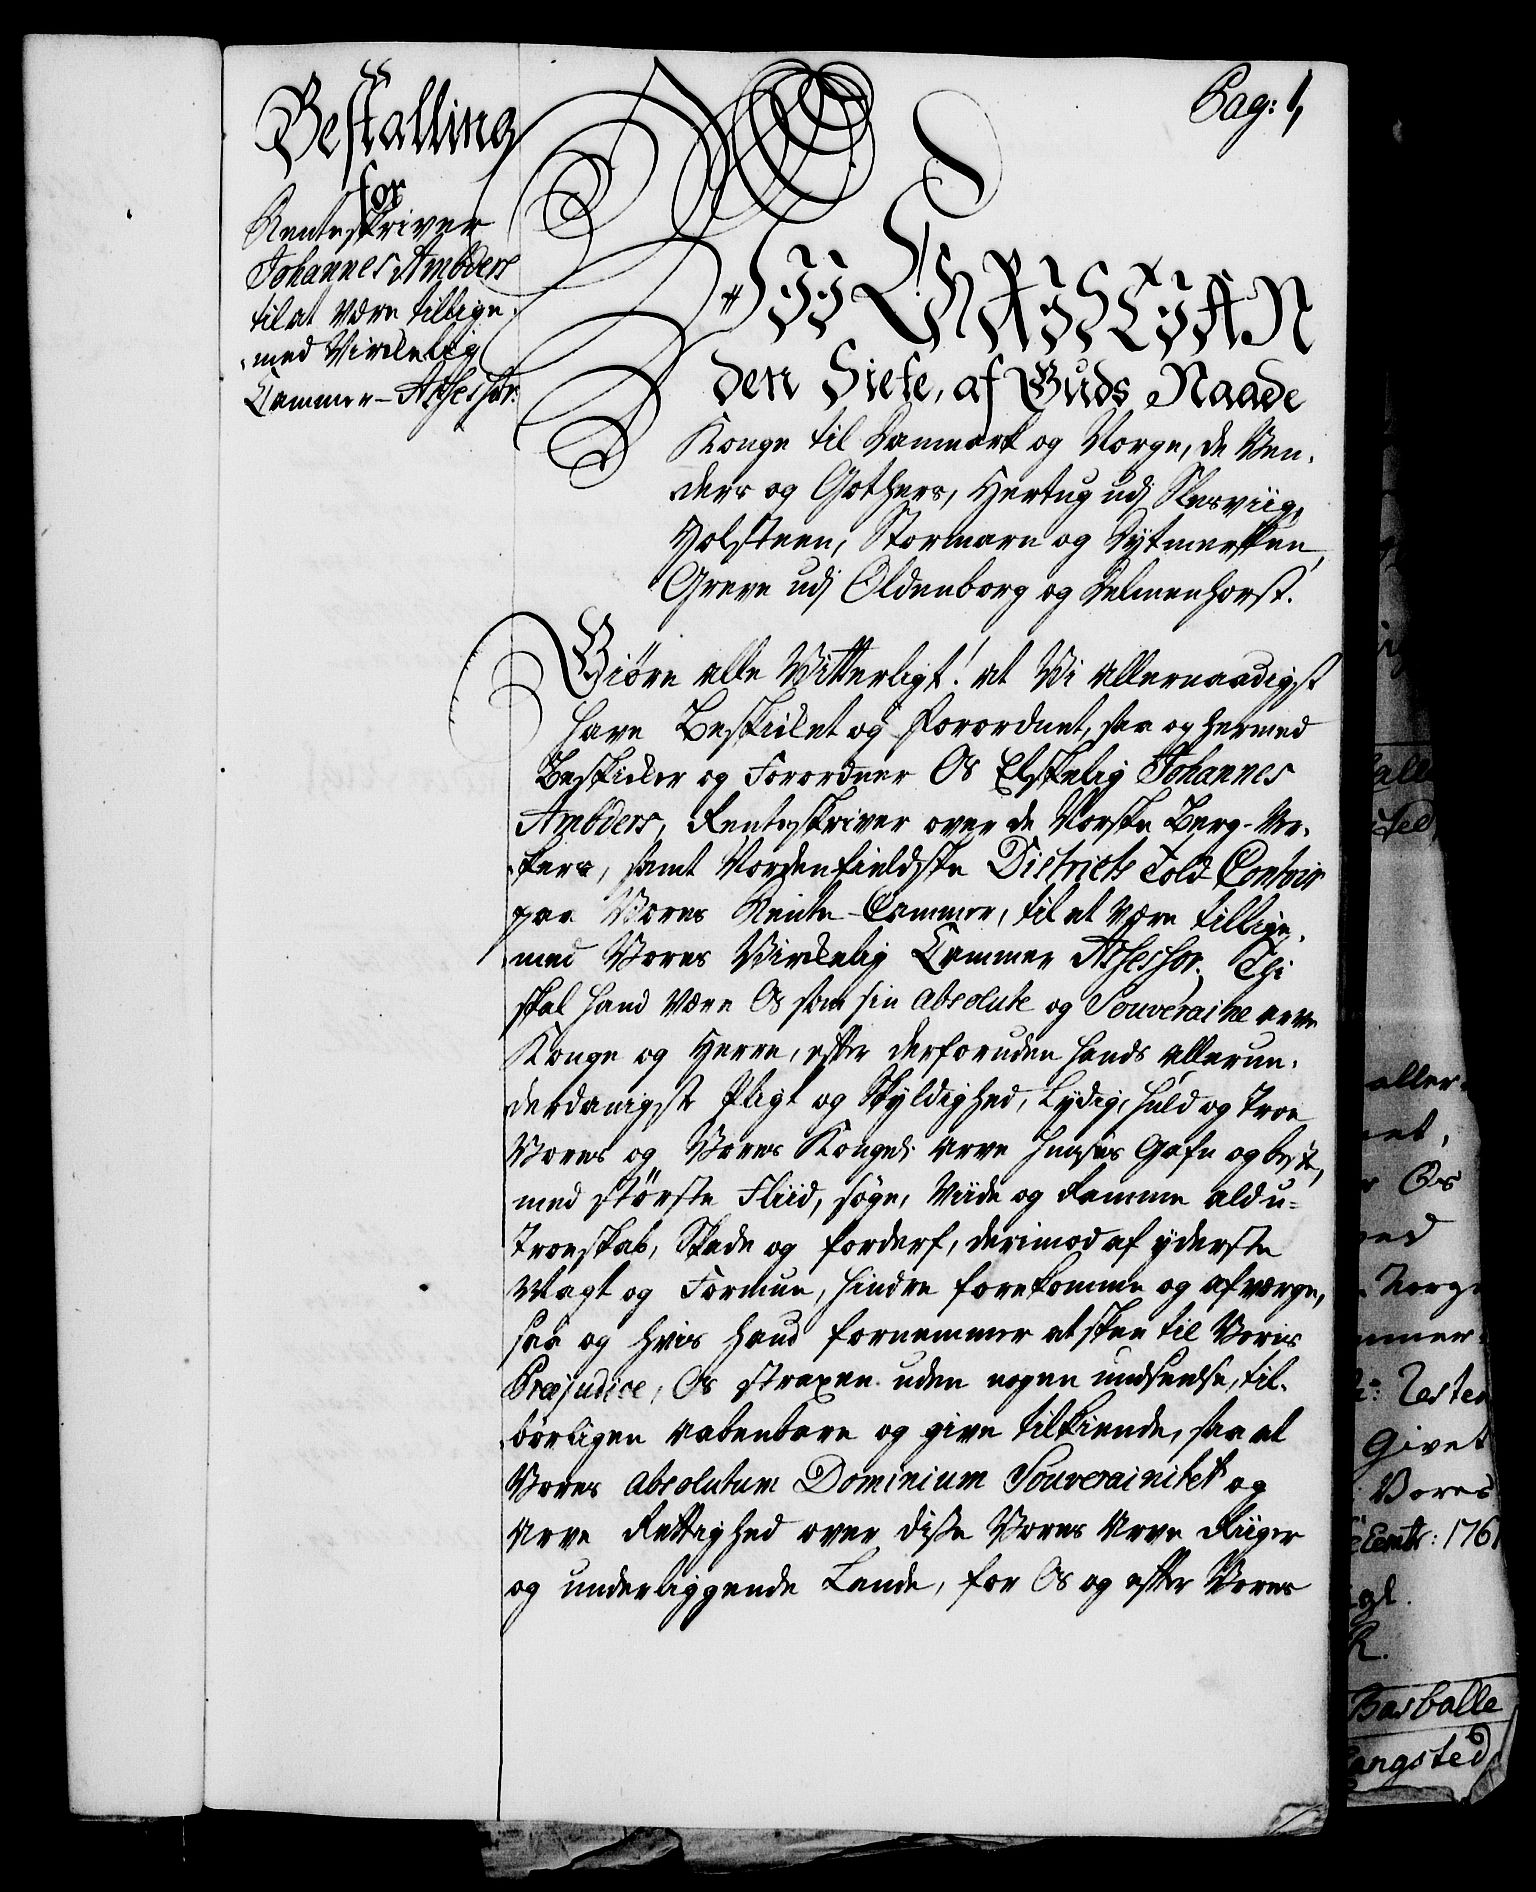 Pag: 1,
Bestalling
for
Renteskriver
Johannes Ambders
til at være tillige
med Virkelig
Cammer-Assessor.
Vii CHRISTIAN
den Siette, af Guds Naade
Konge til Danmark og Norge, de Ven-
ders og Gothers, Hertug udj Slesviig,
Holsteen, Stormarn og Dytmersken,
Greve udj Oldenborg og Delmenhorst.
Giöre alle Vitterligt! at Vi allernaadigst
have Beskicket og Forordnet, saa og hermed
Beskicker og Forordner Os Elskelig Johannes
Ambders, Renteskriver over de Norske Berg-Ver-
kers, samt Nordenfieldske Districts Told Contoir
paa Vores Rente-Cammer, til at være tillige
med Vores Virkelig Cammer Assessor. Thi
skal hand være Os som sin absolute og Souveraine arve
Konge og Herre, efter derforuden hands allerun-
derdanigst Pligt og Skyldighed, Lydig, huld og troe
Vores og Vores Kongel: arve Huuses Gafn og beste,
med störste Fliid, söge, viide og ramme ald u-
troeskab, Skade og forderf, derimod af yderste
Magt og Formue, hindre forekomme og afværge,
saa og hvis hand fornemmer at skee til Voris
Præjudice, Os straxen uden nogen undseelse, til-
börligen aabenbare og give tilkiende, saa at
Vores absolutum Dominium Souverainitet og
Arve Rettighed over disse Vores Arve Riiger
og underliggende Lande, for Os og efter Vores
aller-
Os
Givet
Vores
1761
Basballe